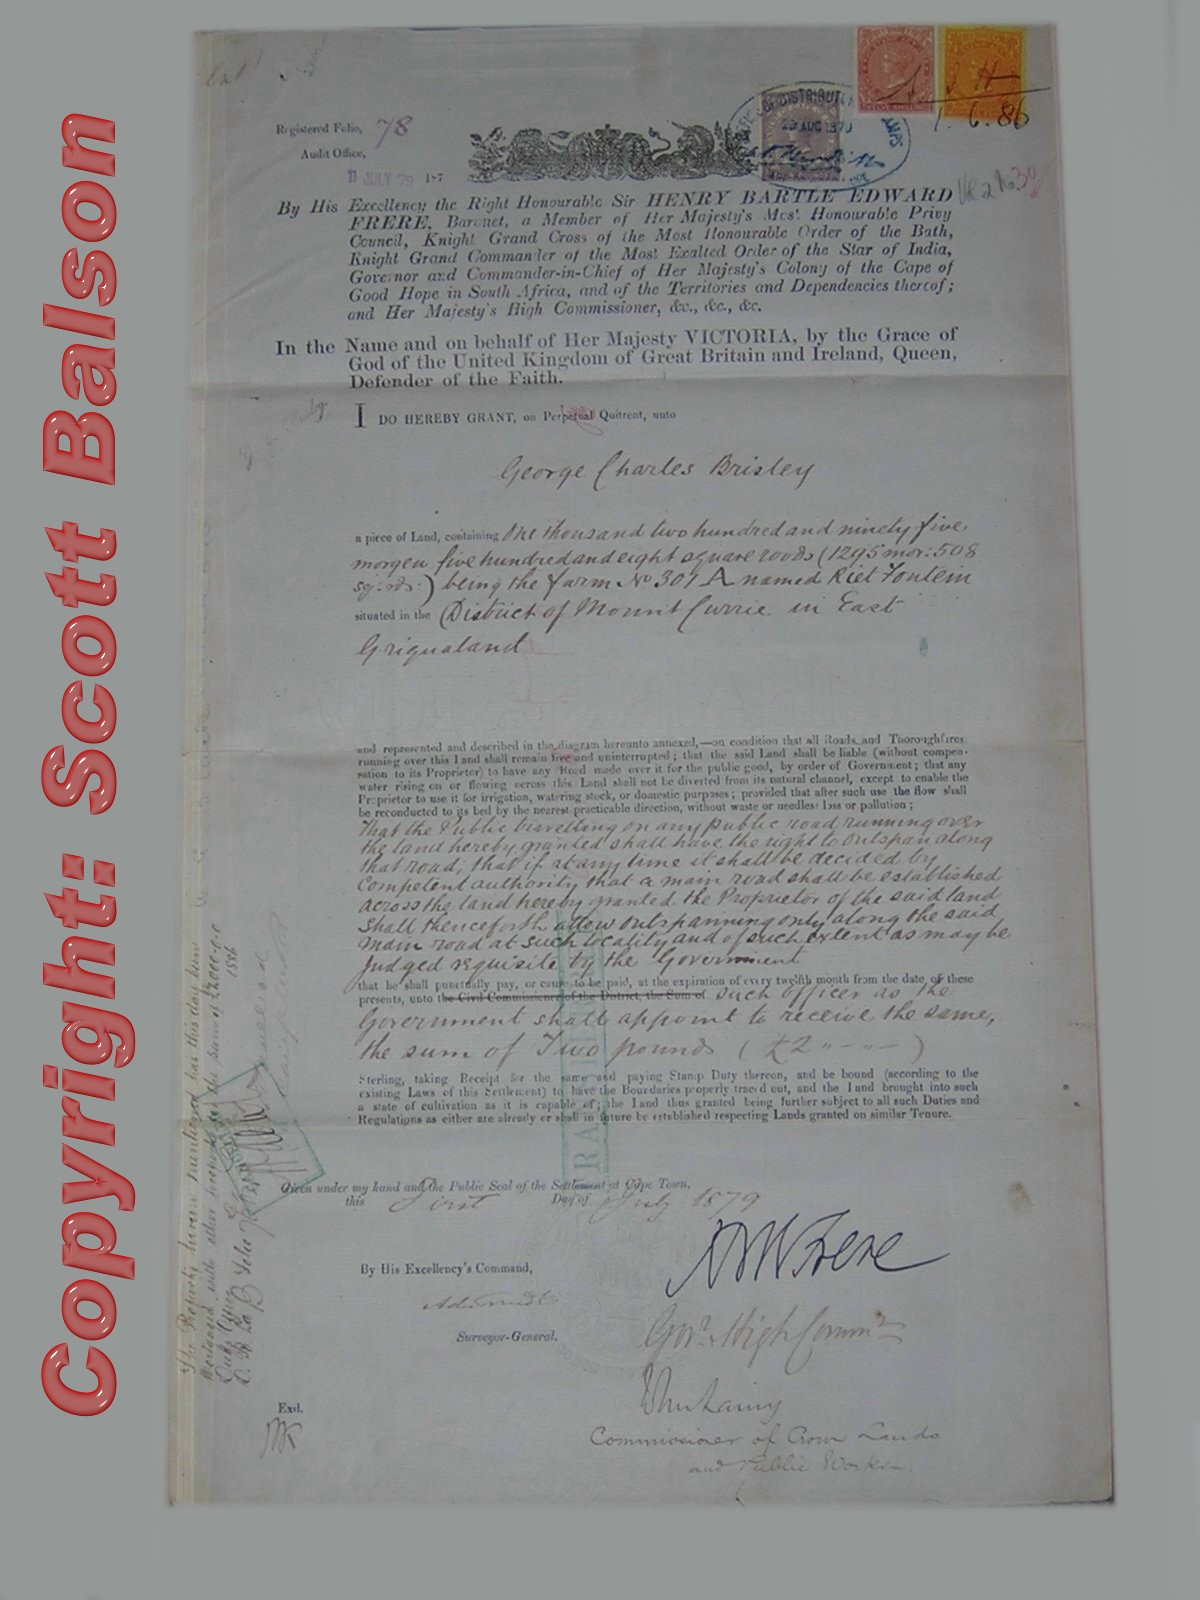 Copyright: Scott Balson
Registered Folio, 78
Audit Office,
11 JULY 79 187
OF DISTRIBUT
29 AUG 1879
1. 6. 86
By His Excellency the Right Honourable Sir HENRY BARTLE EDWARD
FRERE, Baronet, a Member of Her Majesty's Most Honourable Privy
Council, Knight Grand Cross of the Most Honourable Order of the Bath,
Knight Grand Commander of the Most Exalted Order of the Star of India,
Governor and Commander-in-Chief of Her Majesty's Colony of the Cape of
Good Hope in South Africa, and of the Territories and Dependencies thereof;
and Her Majesty's High Commissioner, &c., &c., &c.
In the Name and on behalf of Her Majesty VICTORIA, by the Grace of
God of the United Kingdom of Great Britain and Ireland, Queen,
Defender of the Faith.
I DO HEREBY GRANT, on Perpetual Quitrent, unto
George Charles Brisley
a piece of Land, containing One thousand two hundred and ninety five
morgen five hundred and eight square roods (1295 mor: 508
sq. rds.) being the farm No 301 A named Riet Fontein
situated in the District of Mount Currie in East
Griqualand
and represented and described in the diagram hereunto annexed,—on condition that all Roads and Thoroughfares
running over this Land shall remain free and uninterrupted; that the said Land shall be liable (without compen-
sation to its Proprietor) to have any Road made over it for the public good, by order of Government; that any
water rising on or flowing across this Land shall not be diverted from its natural channel, except to enable the
Proprietor to use it for irrigation, watering stock, or domestic purposes; provided that after such use the flow shall
be reconducted to its bed by the nearest practicable direction, without waste or needless loss or pollution;
That the Public travelling on any public road running over
the land hereby granted shall have the right to outspan along
that road; that if at any time it shall be decided by
Competent authority that a main road shall be established
across the land hereby granted the Proprietor of the said land
shall thenceforth allow outspanning only along the said
main road at such locality and of such extent as may be
judged requisite by the Government
that he shall punctually pay, or cause to be paid, at the expiration of every twelfth month from the date of these
presents, unto the Civil Commissioner of the District, the Sum of such officer as the
Government shall appoint to receive the same,
the sum of Two pounds (£2 " - " - )
Sterling, taking Receipt for the same and paying Stamp Duty thereon, and be bound (according to the
existing Laws of this Settlement) to have the Boundaries properly traced out, and the Land brought into such
a state of cultivation as it is capable of; the Land thus granted being further subject to all such Duties and
Regulations as either are already or shall in future be established respecting Lands granted on similar Tenure.
Given under my hand and the Public Seal of the Settlement at Cape Town,
this First Day of July 1879
HBEFrere
By His Excellency's Command,
Govr. & High Commr.
Surveyor-General.
Commissioner of Crown Lands
and Public Works
Exd.
The Property herein mentioned has this day been
Mortgaged with other
1886